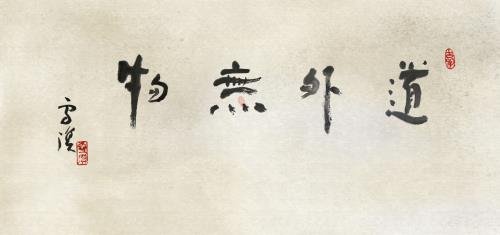 道外無物